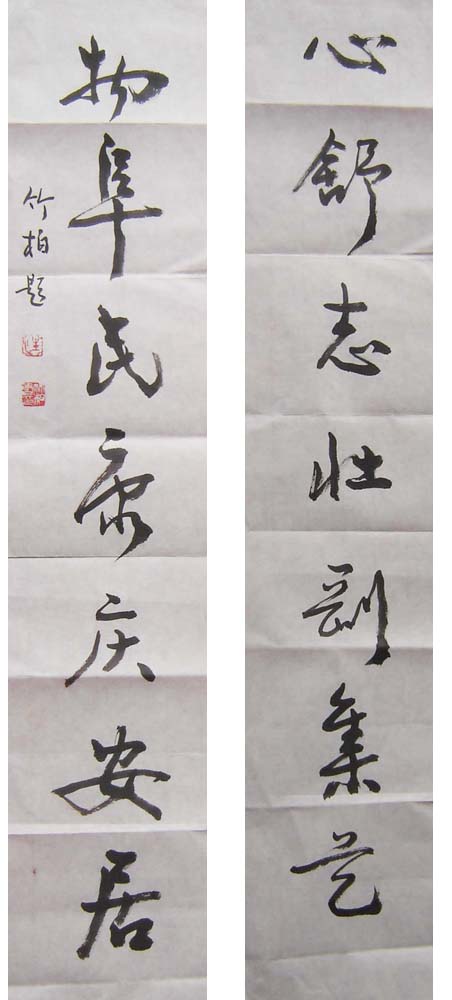 心舒志壮集艺
物阜民康庆安居
竹柏题